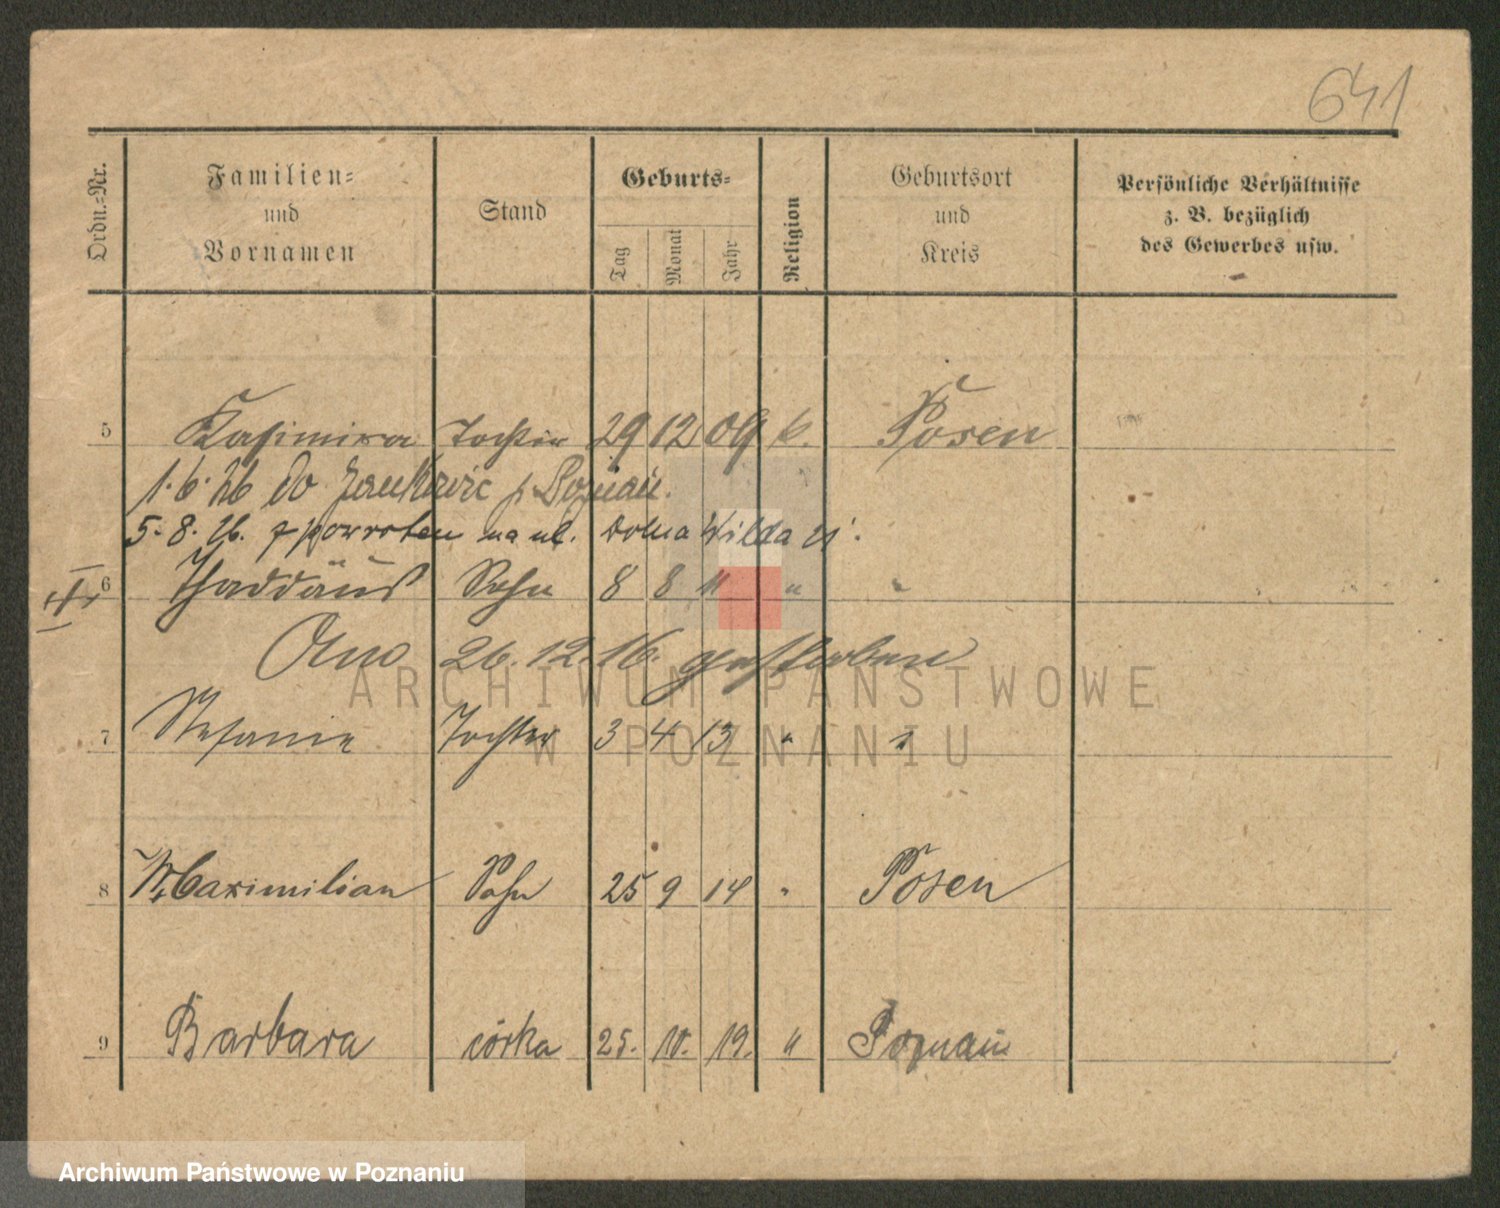 641
Ordn.-Nr. Familien- und Vornamen Stand Geburts- Tag Monat Jahr Religion Geburtsort und Kreis Persönliche Verhältnisse z. B. bezüglich des Gewerbes usw.
5 Kasimira Tochter 29 12 09 k. Posen
1. 6. 26 do Jankowic p. Poznań.
5. 8. 26. z powrotem na ul. Dolna Wilda
6 Thaddäus Sohn 8 8 11 " "
26. 12. 16. gestorben
7 Stefanie Tochter 3 4 13 " "
8 Maximilian Sohn 25 9 14 " Posen
9 Barbara córka 25. 10. 19. " Poznań
ARCHIWUM PAŃSTWOWE
W POZNANIU
Archiwum Państwowe w Poznaniu